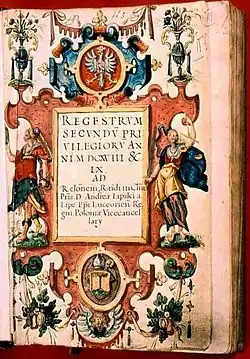 REGESTRVM
SECVNDV PRI
VILEGIORV AN
NI M DCXVIII &
IX.
AD
Relonem Rndi in Chro
Pris D. Andreæ Lipski a
Lipe Epi Luceorien. Re
gni Poloniæ Vicecancel
lary